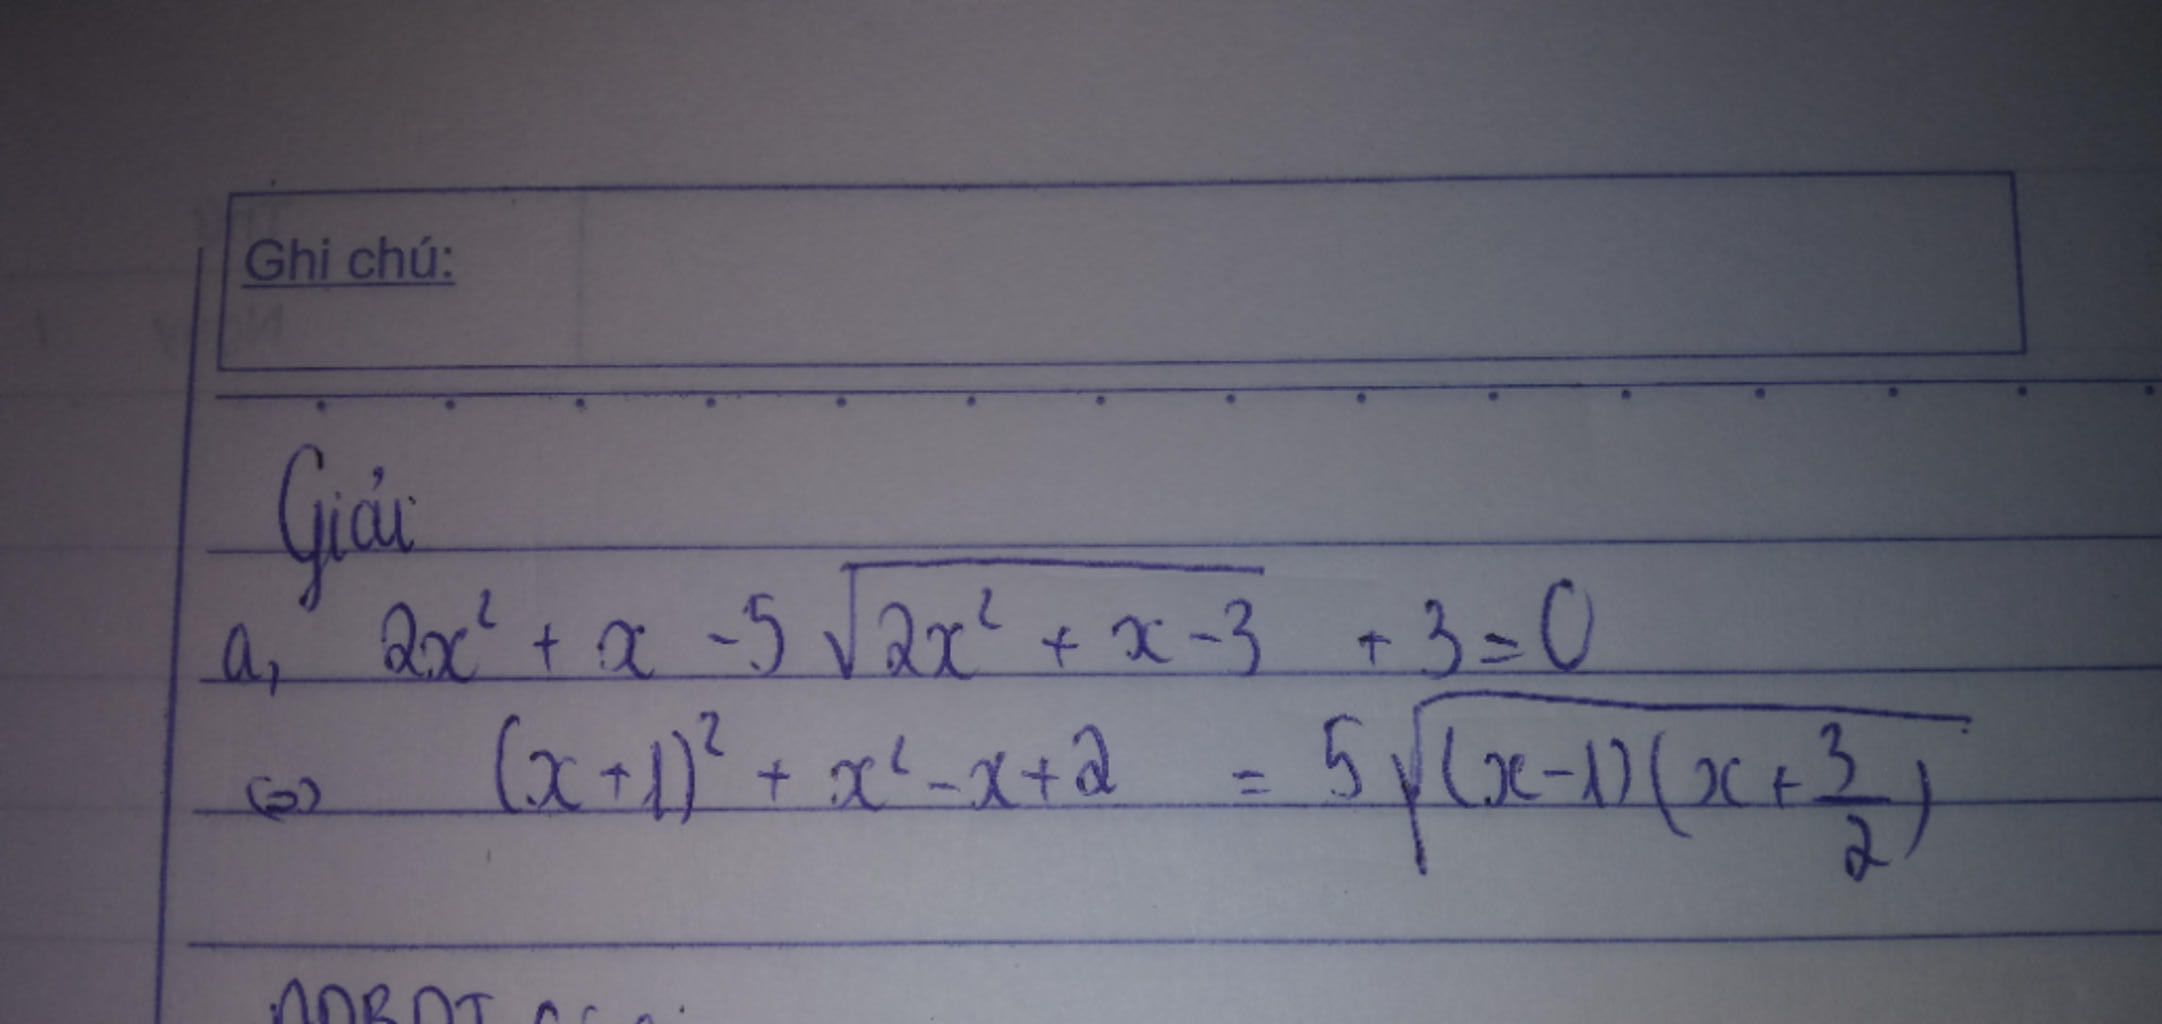 Ghi chú:
Giải
a, 2x² + x - 5√(2x² + x - 3) + 3 = 0
⇔ (x+1)² + x² - x + 2 = 5√((x-1)(x + 3/2))